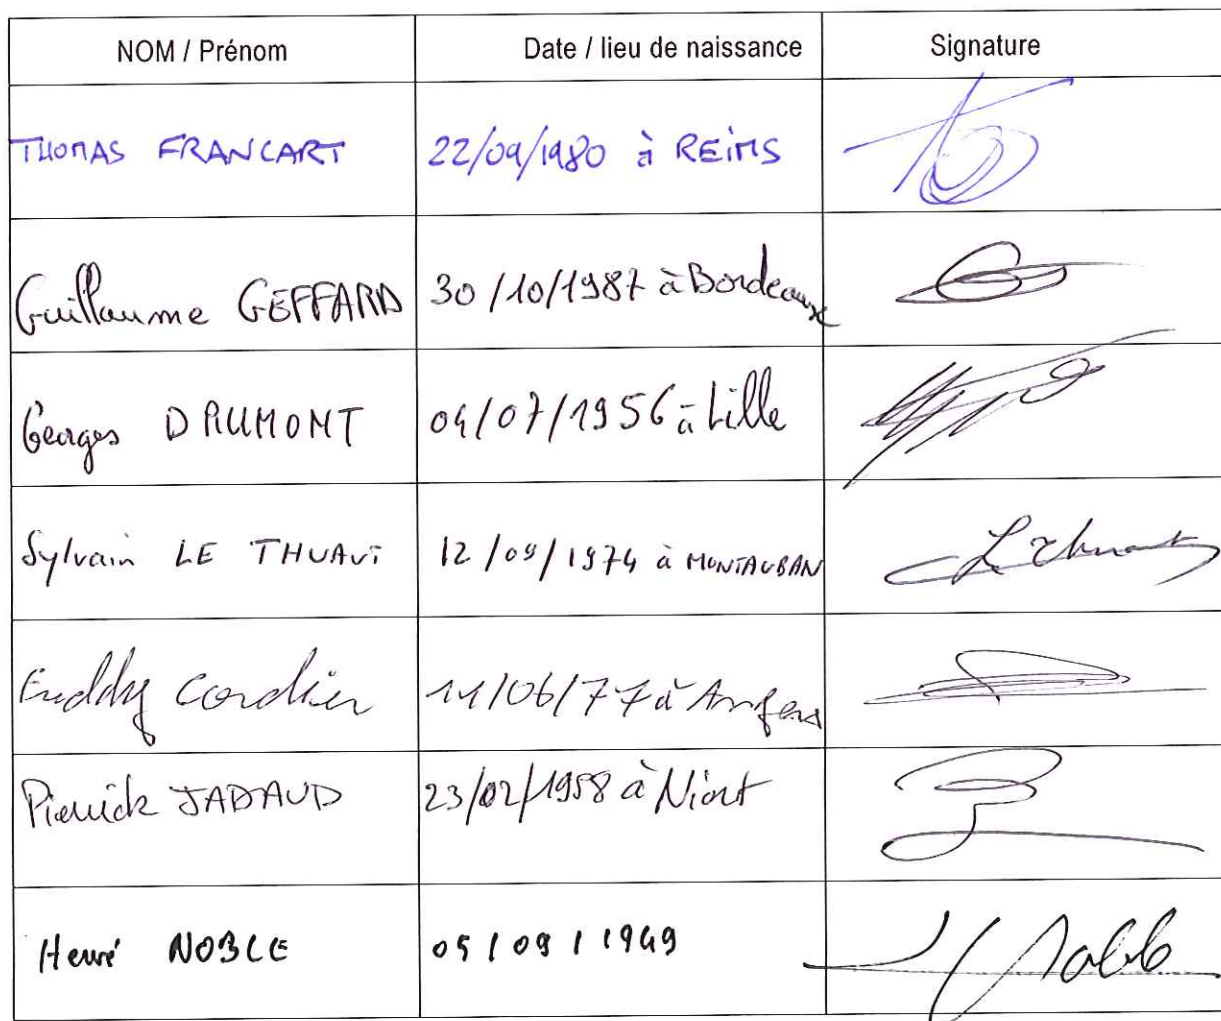 NOM / Prénom Date / lieu de naissance Signature
THOMAS FRANCART 22/09/1980 à REIMS
Guillaume GEFFARD 30/10/1987 à Bordeaux
Georges DRUMONT 04/07/1956 à Lille
Sylvain LE THUAUT 12/09/1974 à MONTAUBAN
Freddy Cordier 11/06/77 à Angers
Pierrick JADAUD 23/02/1958 à Niort
Hervé NOBLE 05/09/1949